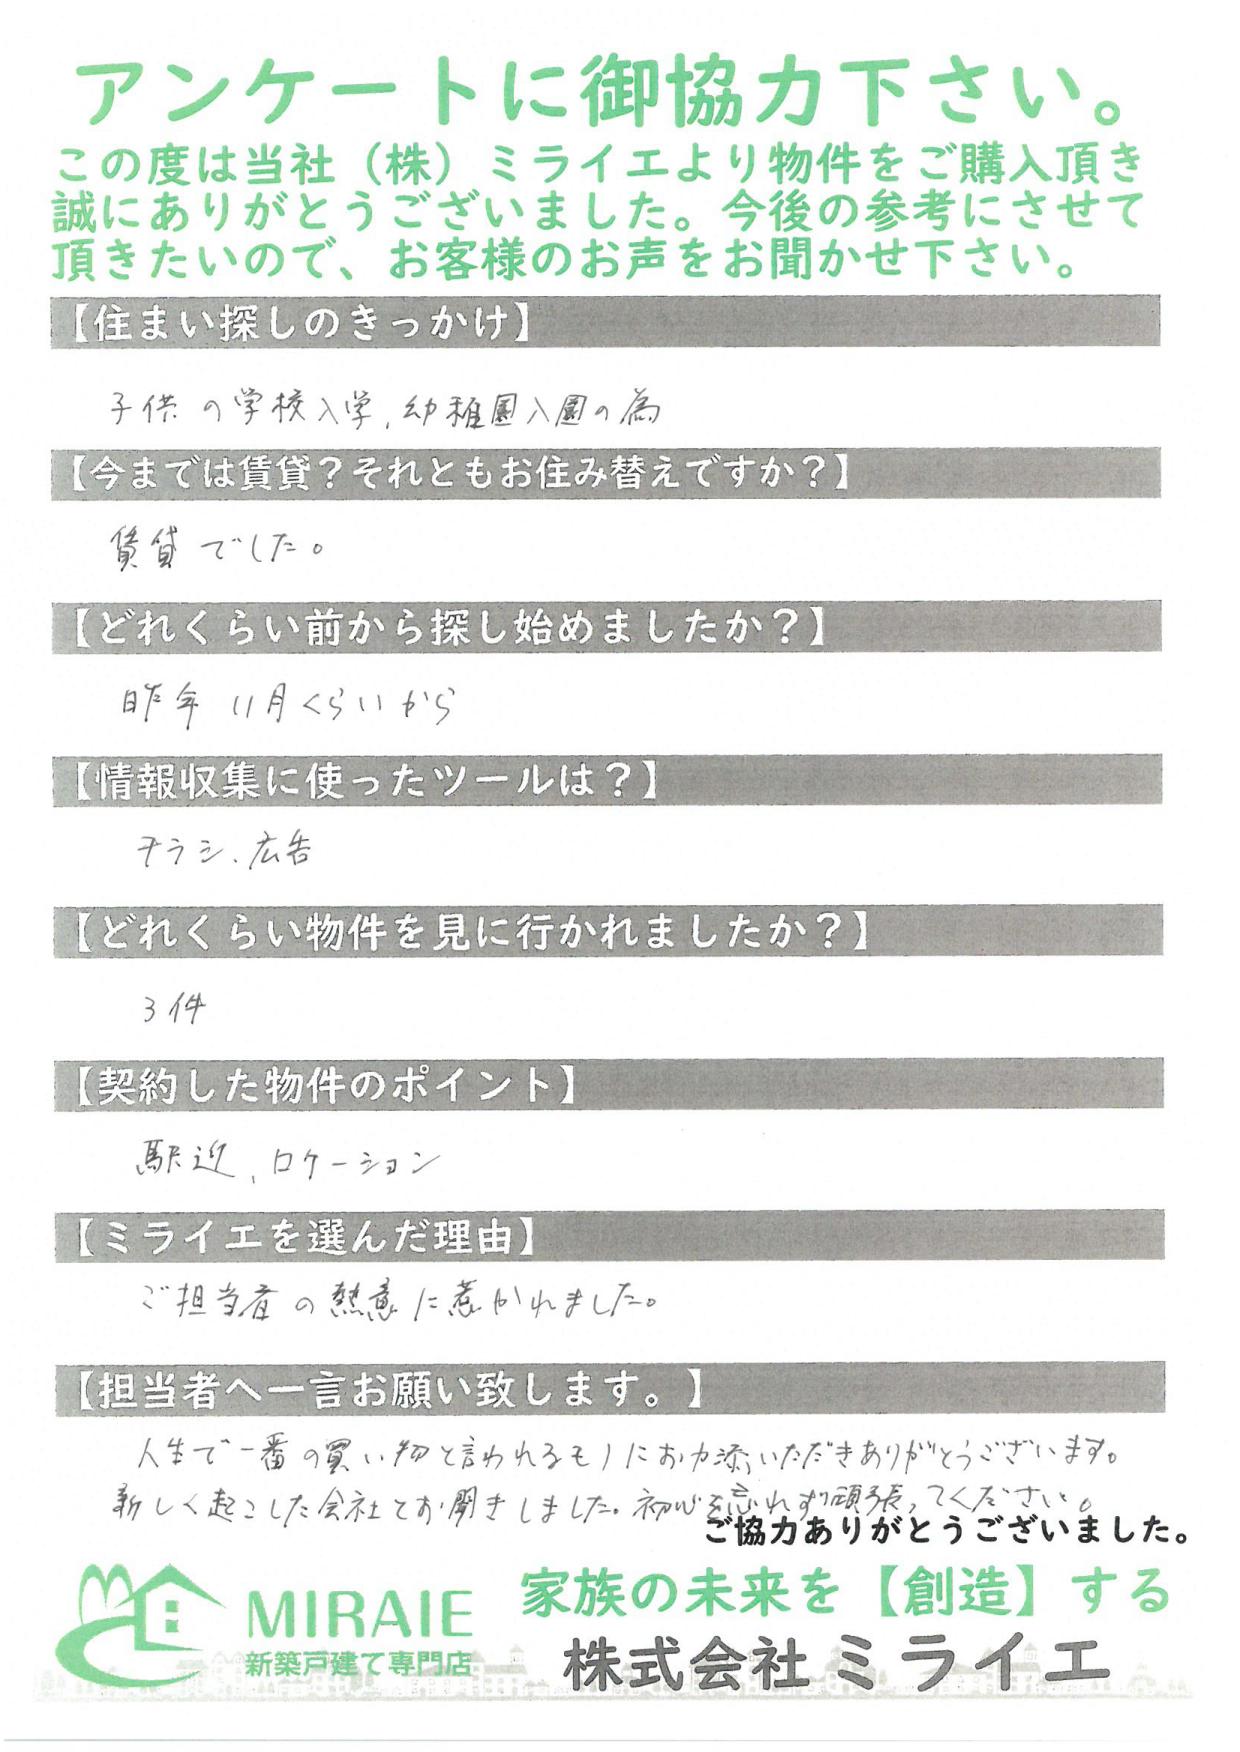 アンケートに御協力下さい。
この度は当社（株）ミライエより物件をご購入頂き
誠にありがとうございました。今後の参考にさせて
頂きたいので、お客様のお声をお聞かせ下さい。
【住まい探しのきっかけ】
子供の学校入学、幼稚園入園の為
【今までは賃貸？それともお住み替えですか？】
賃貸でした。
【どれくらい前から探し始めましたか？】
昨年11月くらいから
【情報収集に使ったツールは？】
チラシ、広告
【どれくらい物件を見に行かれましたか？】
3件
【契約した物件のポイント】
駅近、ロケーション
【ミライエを選んだ理由】
ご担当者の熱意に惹かれました。
【担当者へ一言お願い致します。】
人生で一番の買い物と言われるモノにお力添いただきありがとうございます。
新しく起こした会社とお聞きしました。初心を忘れず頑張ってください。
ご協力ありがとうございました。
家族の未来を【創造】する
MIRAIE
新築戸建て専門店
株式会社ミライエ